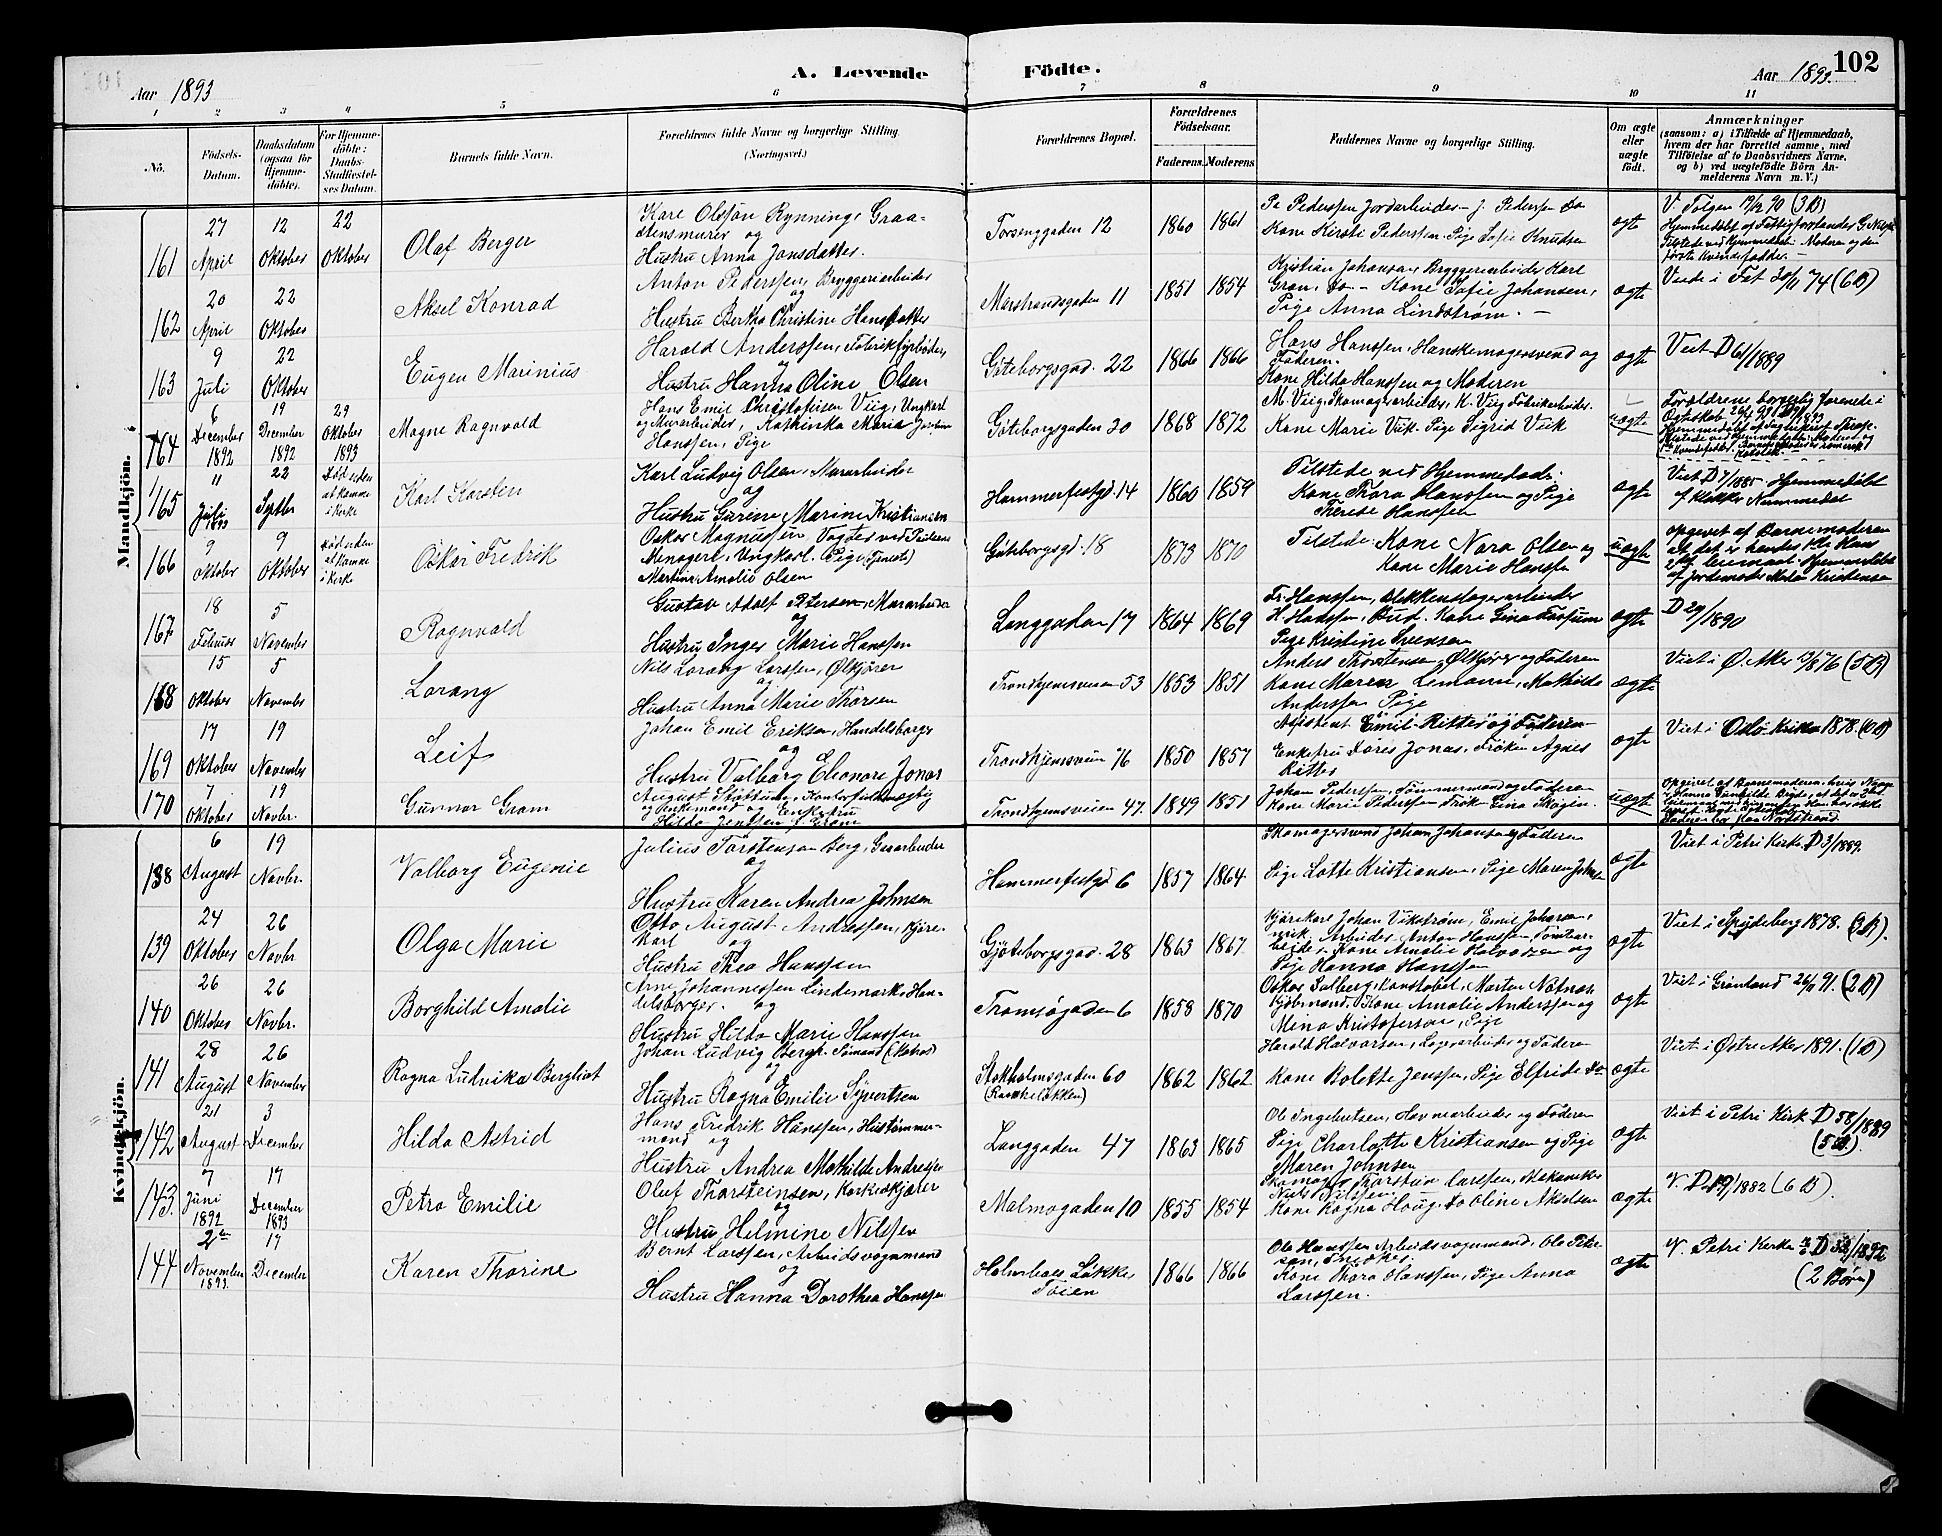 102
Aar 1893
A. Levende Födte.
Aar 1893.
1 2 3 4 5 6 7 8 9 10 11
No.
Födsels-Datum.
Daabsdatum (ogsaa for Hjemme-döbte).
For Hjemme-döbte: Daabs-Stadfæstel-ses Datum.
Barnets fulde Navn.
Forældrenes fulde Navne og borgerlige Stilling.
(Næringsvei.)
Forældrenes Bopæl.
Forældrenes Födselsaar.
Faderens. Moderens.
Faddernes Navne og borgerlige Stilling.
Om ægte eller uægte födt.
Anmærkninger
(saasom: a) i Tilfælde af Hjemmedaab,
hvem der har forrettet samme, med
Tilföielse af to Daabsvidners Navne,
og b) ved uægtefödte Börn An-
melderens Navn m. V.)
Mandkjön.
161 27 April 12 Oktober 22 Oktober
Olaf Berger
Karl Olsson Rynning, Graa-
stensmurer og
Hustru Anna Jonsdatter.
Torsenggaden 12 1860 1861
Pe Pederssen Jordarbeider - J. Pederssen Do
Kone Kirsti Pederssen. Pige Sofie Knudsen
ægte
162 20 April 22 Oktober
Aksel Konrad
Anton Pederssen, Bryggeriarbeider
og
Hustru Bertha Christine Hansdatter
Marstrandsgaden 11 1851 1854
Kristian Johansen, Bryggeriarbeider Karl
Gran, Do. - Kone Sofie Johansen,
Pige Anna Lindstrøm. -
ægte
163 9 Juli 22 Oktober
Eugen Marinius
Harald Anderssen, Fabrikfyrbøder,
og
Hustru Hanna Oline Olsen
Göteborgsgad. 22 1866 1866
Hans Hanssen, Hanskemagersvend og
Faderen.
Kone Hilda Hanssen og Moderen
ægte
Viet D 61/1889
164 6 December 1892 19 December 1892 29 Oktober 1893
Magne Ragnvald
Hans Emil Christofersen Viig, Ungkarl
og Murarbeider, Kathinka Maria
Hanssen, Pige
Göteborgsgaden 20 1868 1872
M. Viig, Skomagerarbeider, K. Viig Fabrikarbeider.
Kone Marie Viik. Pige Sigrid Viik
uægte
Forældrene borgerlig forenede i
165 11 Juli 1893 22 Septbr Död uden at komme i Kirke
Karl Karsten
Karl Ludvig Olsen, Murarbeider
og
Hustru Gurine Marine Kristiansen
Hammerfestgd. 14 1860 1859
Tilstede ved Hjemmedaab:
Kone Thora Hanssen og Pige
Therese Hanssen
ægte
Viet D 7/1885 Hjemmedöbt
af Klokker Nummedal
166 9 Oktober 9 Oktober Död uden at komme i Kirke
Oskar Fredrik
Oskar Magnussen Vogter ved
Menageri, Ungkarl. Pige (Tjenests)
Martine Amalie Olsen
Göteborgsgd. 18 1873 1870
Tilstede: Kone Nora Olsen og
Kone Marie Hanssen
uægte
Opgivet af Barnemoderen
at det er hendes 1ste Hans
2det leiermaal. Hjemmedöbt
af Jordemoder Kristensen
167 18 Februar 5 November
Ragnvald
Gustav Adolf Petersen, Murarbeider
og
Hustru Inger Marie Hanssen
Langgaden 17 1864 1869
Fr. Hanssen, Blikkenslagerarbeider
H. Hanssen, Bud. Kone Gina Fossum
Pige Kristine Svensen
ægte
D 29/1890
168 15 Oktober 5 November
Lorang
Nils Lorang Larssen, Ølkjører
og
Hustru Anna Marie Thorsen
Trondhjemsveien 53 1853 1851
Anders Thorstensen Ølkjører og Faderen
Kone Maren Limann, Mathilde
Anderssen Pige
ægte
Viet i Ø. Aker 1876 (5 B)
169 17 Oktober 19 November
Leif
Johan Emil Eriksen, Handelsborger
og
Hustru Valborg Eleonore Jonas
Trondhjemsveien 76 1850 1857
Assistent Emil Ritter og Faderen
Enkefru Doris Jonas, Frøken Agnes
Ritter
ægte
Viet i Oslo Kirke 1878.
170 7 Oktober 19 Novbr.
Gunnar Gram
August Stöttum, Kontorfuldmægtig
og Enkemand og Enkefru
Hilda Jenssen f. Gram
Trondhjemsveien 47. 1849 1851
Johan Pederssen, Tømmermand og Faderen
Kone Maria Pederssen Frøken Lina Skøien.
uægte
Kvindkjön.
138 6 August 19 Novbr.
Valborg Eugenie
Julius Torstensen Berg, Gaardarbeider
og
Hustru Karen Andrea Johnsen
Hammerfestgd 6 1857 1864
Skomagersvend Johan Johansen og Faderen
Pige Lotte Kristiansen, Pige Maren Johnsen
ægte
Viet i Petri Kirke D 3/1889.
139 24 Oktober 26 Novbr
Olga Marie
Otto August Andressen, Kjøre-
karl og
Hustru Thea Hanssen
Gjöteborgsgad. 28 1863 1867
Kjørekarl Johan Vikstrøm, Emil Johansen,
Arbeider Anton Hanssen, Tømmerar-
beider, Kone Amalie Halvorsen og
Pige Hanna Hanssen
ægte
Viet i Spydeberg 1878.
140 26 Oktober 26 Novbr.
Borghild Amalie
Arne Johannessen Lindemark, Han-
delsborger. og
Hustru Hilda Marie Hanssen
Tromsøgaden 6 1858 1870
Oskar Solberg, Konstabel, Marten Næsnas
Kjøbmand, Kone Amalie Anderssen og
Mina Kristofersen, Pige
ægte
Viet i Grønland 26/11 91. (2 B)
141 28 August 26 November
Ragna Ludvika Bergliot
Johan Ludvig Bergh. Sømand (Matros)
og
Hustru Ragna Emilie Syvertsen
Stokholmsgaden 60
1862 1862
Harald Halvorsen, Lagerarbeider og Faderen
Kone Bolette Jenssen, Pige Elfride Do
ægte
Viet i Østre Aker 1891. (1 B)
142 21 August 3 December
Hilda Astrid
Hans Fredrik Hanssen, Hustömmer-
mand og
Hustru Andrea Mathilde Andresen
Langgaden 47 1863 1865
Ole Ingebretsen, Havnearbeider og Faderen
Pige Charlotte Kristiansen og Pige
Maren Johnsen
ægte
Viet i Petri Kirk D 58/1889
(5 B).
143. 7 Juni 1892 17 December 1893
Petra Emilie
Oluf Thorsteinsen, Korkeskjærer
og
Hustru Helmine Nilssen
Malmøgaden 10 1855 1854
Skomager Thorstein Larssen, Mekaniker
Niels Nilssen
Kone Ragna Houg. Do Oline Akselsen
ægte
V. D 19/1882 (6 B).
144 2den November 1893. 17 December
Karen Thorine
Bernt Larssen, Arbeidsvognmand
og
Hustru Hanna Dorothea Hanssen
Løkke
Töien
1866 1866
Ole Hanssen Arbeidsvognmand, Ole Peter-
sen,
Kone Thora Hanssen, Pige Anna
Larssen.
ægte
V. Petri Kirke
(2 Børn)